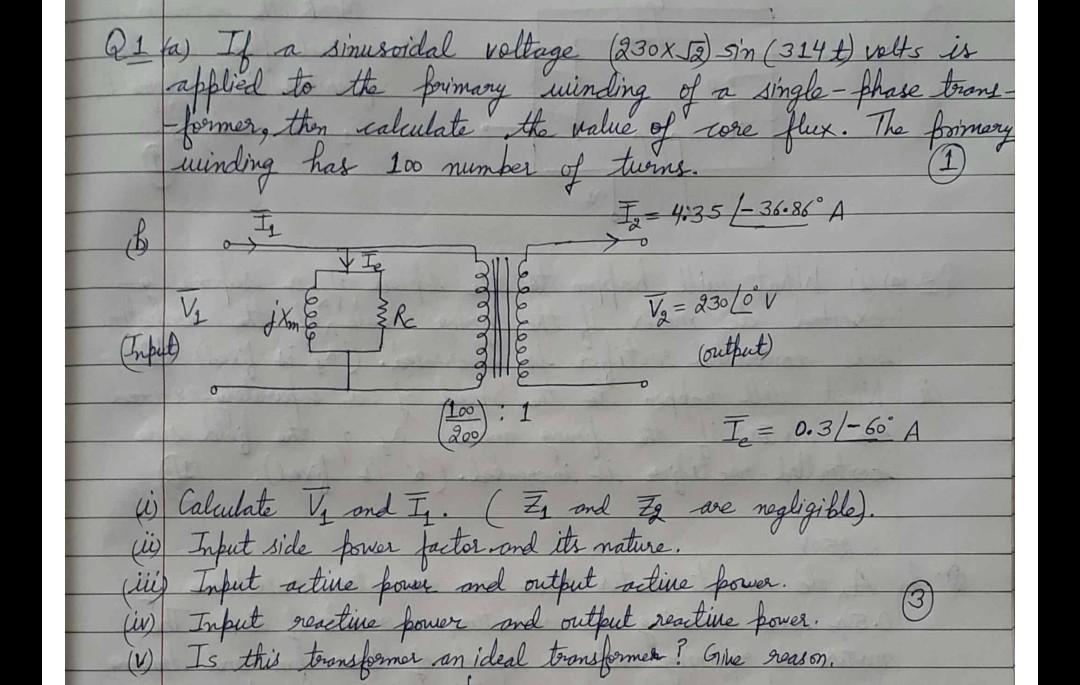 Q1 (a) If a sinusoidal voltage (230×√2) sin (314t) volts is
applied to the primary winding of a single-phase trans-
-former, then calculate the value of core flux. The primary
winding has 100 number of turns. (1)
(b)
Ī₁
Ī₂ = 4.35 ∠-36.86° A
Iₑ
V̄₁
jXm
Rc
V̄₂ = 230∠0° V
(Input)
(output)
(100/200) : 1
Īₑ = 0.3∠-60° A
(i) Calculate V̄₁ and Ī₁. ( Z̄₁ and Z̄₂ are negligible).
(ii) Input side power factor and its nature.
(iii) Input active power and output active power.
(3)
(iv) Input reactive power and output reactive power.
(v) Is this transformer an ideal transformer? Give reason.